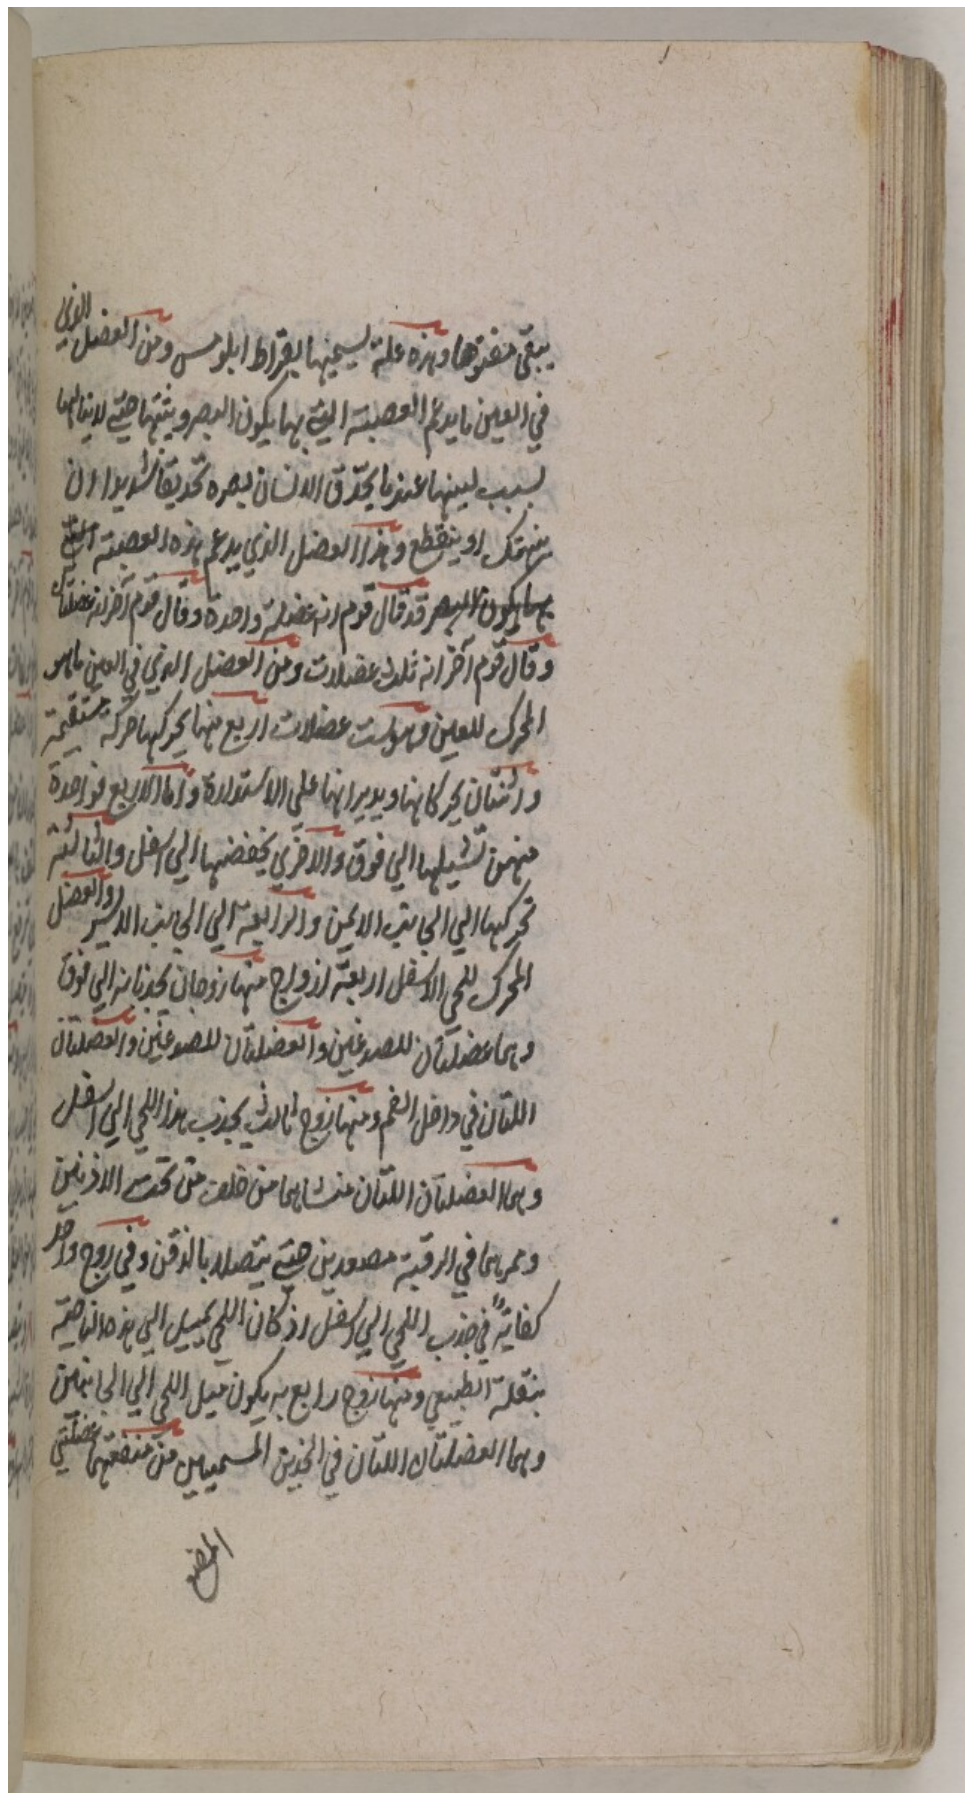 يبقى مفتوحا وهذه علة يسميها بقراط ايلوس ومن العضل الذي
في العين ما يدعم العصبة التي بها يكون البصر ويثبتها حتى لا ينالها
لسبب لينها عندما يحدق الانسان بصره تحديقا شديدا ان
ينهتك او ينقطع وهذا العضل الذي يدعم هذه العصبة التي
بها يكون البصر قد قال قوم انه عضلة واحدة وقال قوم آخر انه عضلتان
وقال قوم آخر انه ثلث عضلات ومن العضل الذي في العين ما هو
المحرك للعين وهو ست عضلات اربع منها يحركها حركة مستقيمة
واثنتان يحركانها ويديرانها على الاستدارة واما الاربع فواحدة
منهن تشيلها الي فوق والاخري يخفضها الي اسفل والثالثة
تحركها الي الجانب الايمن والرابعة الي الجانب الايسر والعضل
المحرك للحي الاسفل اربعة ازواج منها زوجان يجذبانه الي فوق
وهما عضلتان للصدغين والعضلتان للصدغين والعضلتان
اللتان في داخل الفم ومنها زوج ثالث يجذب هذا اللحي الي اسفل
وهما العضلتان اللتان منشاهما من خلف من تحت الاذنين
وممرهما في الرقبة مصعدين حتى يتصلا بالذقن وفي زوج واحد
كفاية في جذب اللحي الي اسفل اذ كان اللحي يميل الي هذه الناحية
بثقله الطبيعي ومنها زوج رابع به يكون ميل اللحي الي الجانبين
وهما العضلتان اللتان في الخدين المسميين من منفعتهما عضلتي
المضغ